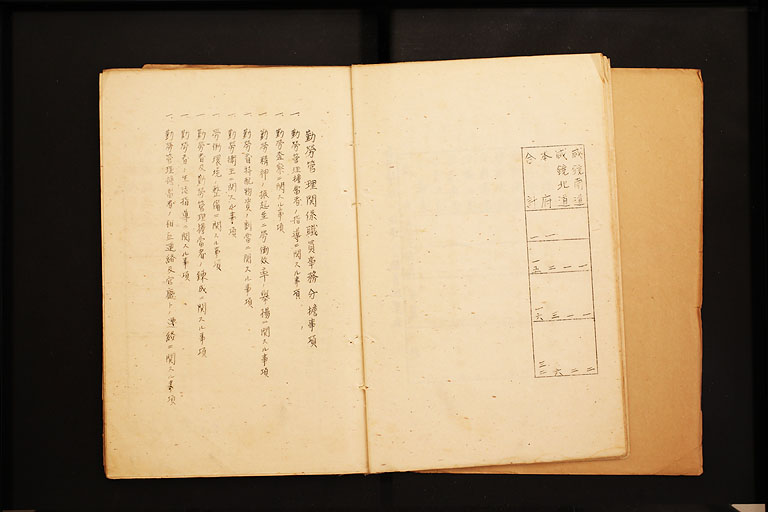 咸鏡南道 一 一 二
咸鏡北道 一 一 二
本府 一 二 三 六
合計 一 一五 一六 三二
勤労管理関係職員事務分擔事項
一、勤労管理擔当者ノ指導ニ関スル事項
一、勤労査察ニ関スル事項
一、勤労精神ノ振起並ニ労働效率ノ挙揚ニ関スル事項
一、勤労者特配物資ノ割当ニ関スル事項
一、勤労衛生ニ関スル事項
一、労働環境ノ整備ニ関スル事項
一、勤労者及勤労管理擔当者ノ錬成ニ関スル事項
一、勤労者ノ生活指導ニ関スル事項
一、勤労管理擔当者ノ相互連絡及官廳トノ連絡ニ関スル事項